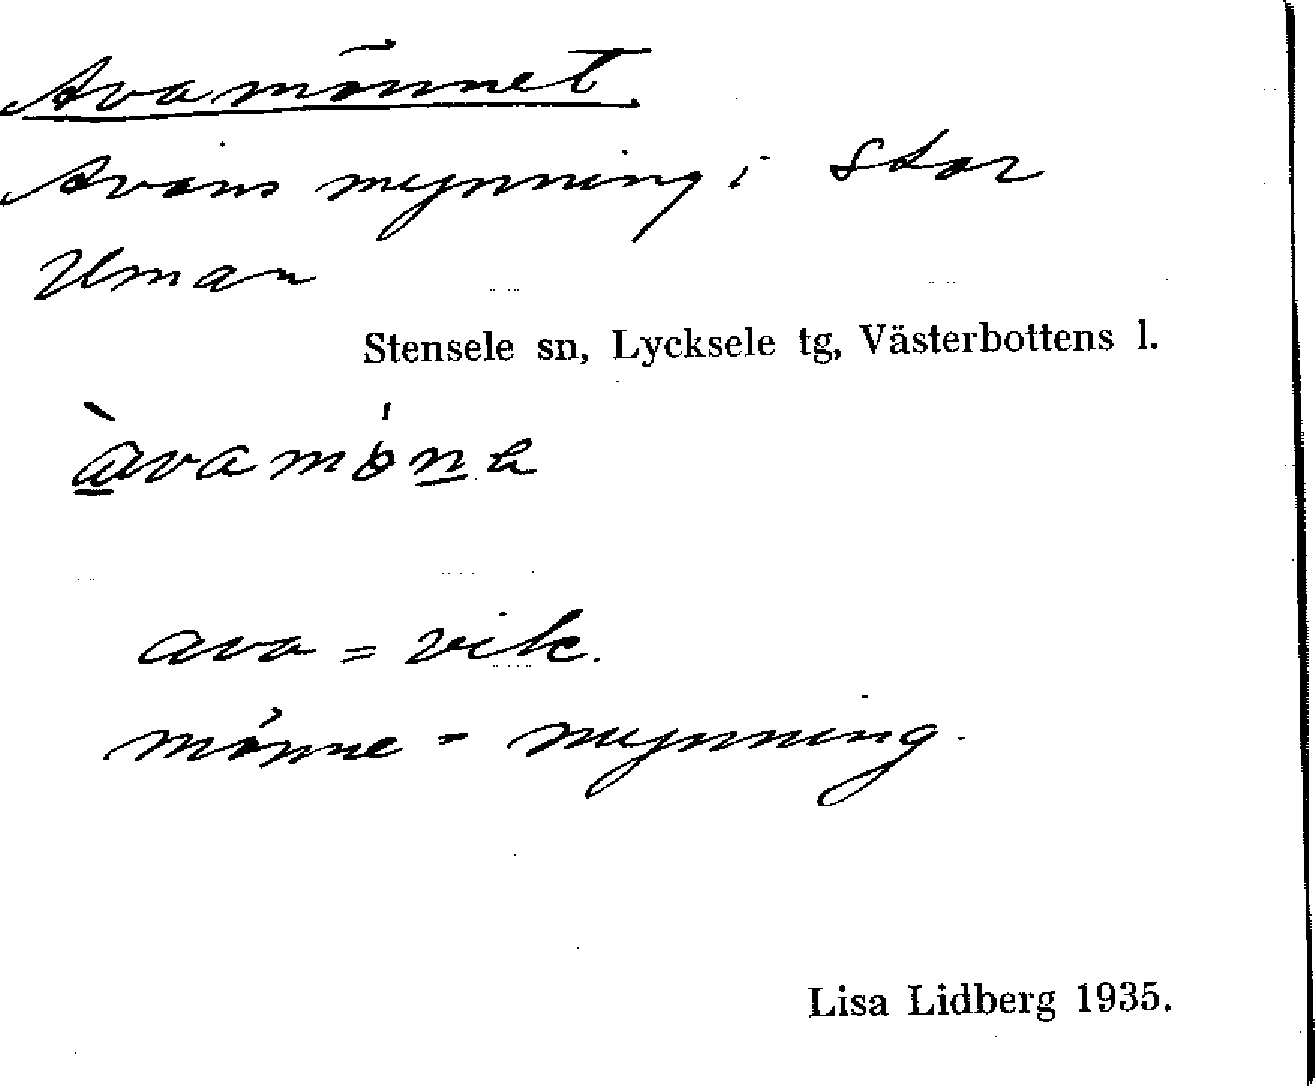 Avamönnet
Avans mynning i Stor
Uman
Stensele sn, Lycksele tg, Västerbottens l.
ava = vik.
mönne = mynning.
Lisa Lidberg 1935.